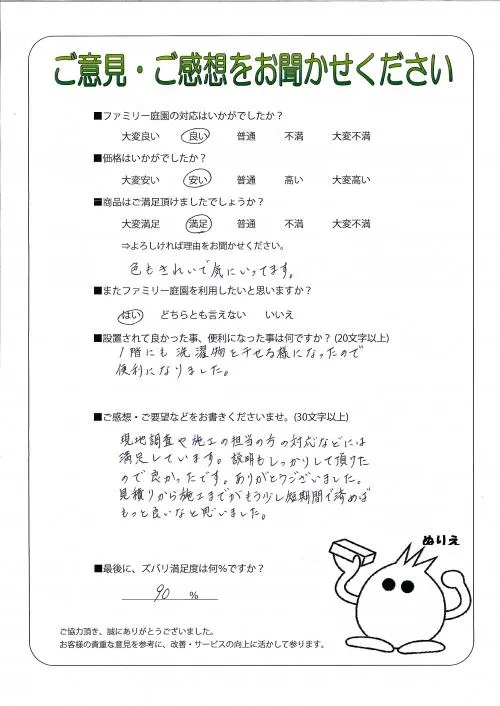 ご意見・ご感想をお聞かせください
■ファミリー庭園の対応はいかがでしたか？
大変良い 良い 普通 不満 大変不満
■価格はいかがでしたか？
大変安い 安い 普通 高い 大変高い
■商品はご満足頂けましたでしょうか？
大変満足 満足 普通 不満 大変不満
⇒よろしければ理由をお聞かせください。
色もきれいで気にいってます。
■またファミリー庭園を利用したいと思いますか？
はい どちらとも言えない いいえ
■設置されて良かった事、便利になった事は何ですか？(20文字以上)
1階にも洗濯物を干せる様になったので
便利になりました。
■ご感想・ご要望などをお書きくださいませ。(30文字以上)
現地調査や施工の担当の方の対応などには
満足しています。説明もしっかりして頂けた
ので良かったです。ありがとうございました。
見積りから施工までがもう少し短期間で済めば
もっと良いなと思いました。
ぬりえ
■最後に、ズバリ満足度は何％ですか？
90 %
ご協力頂き、誠にありがとうございました。
お客様の貴重な意見を参考に、改善・サービスの向上に活かして参ります。